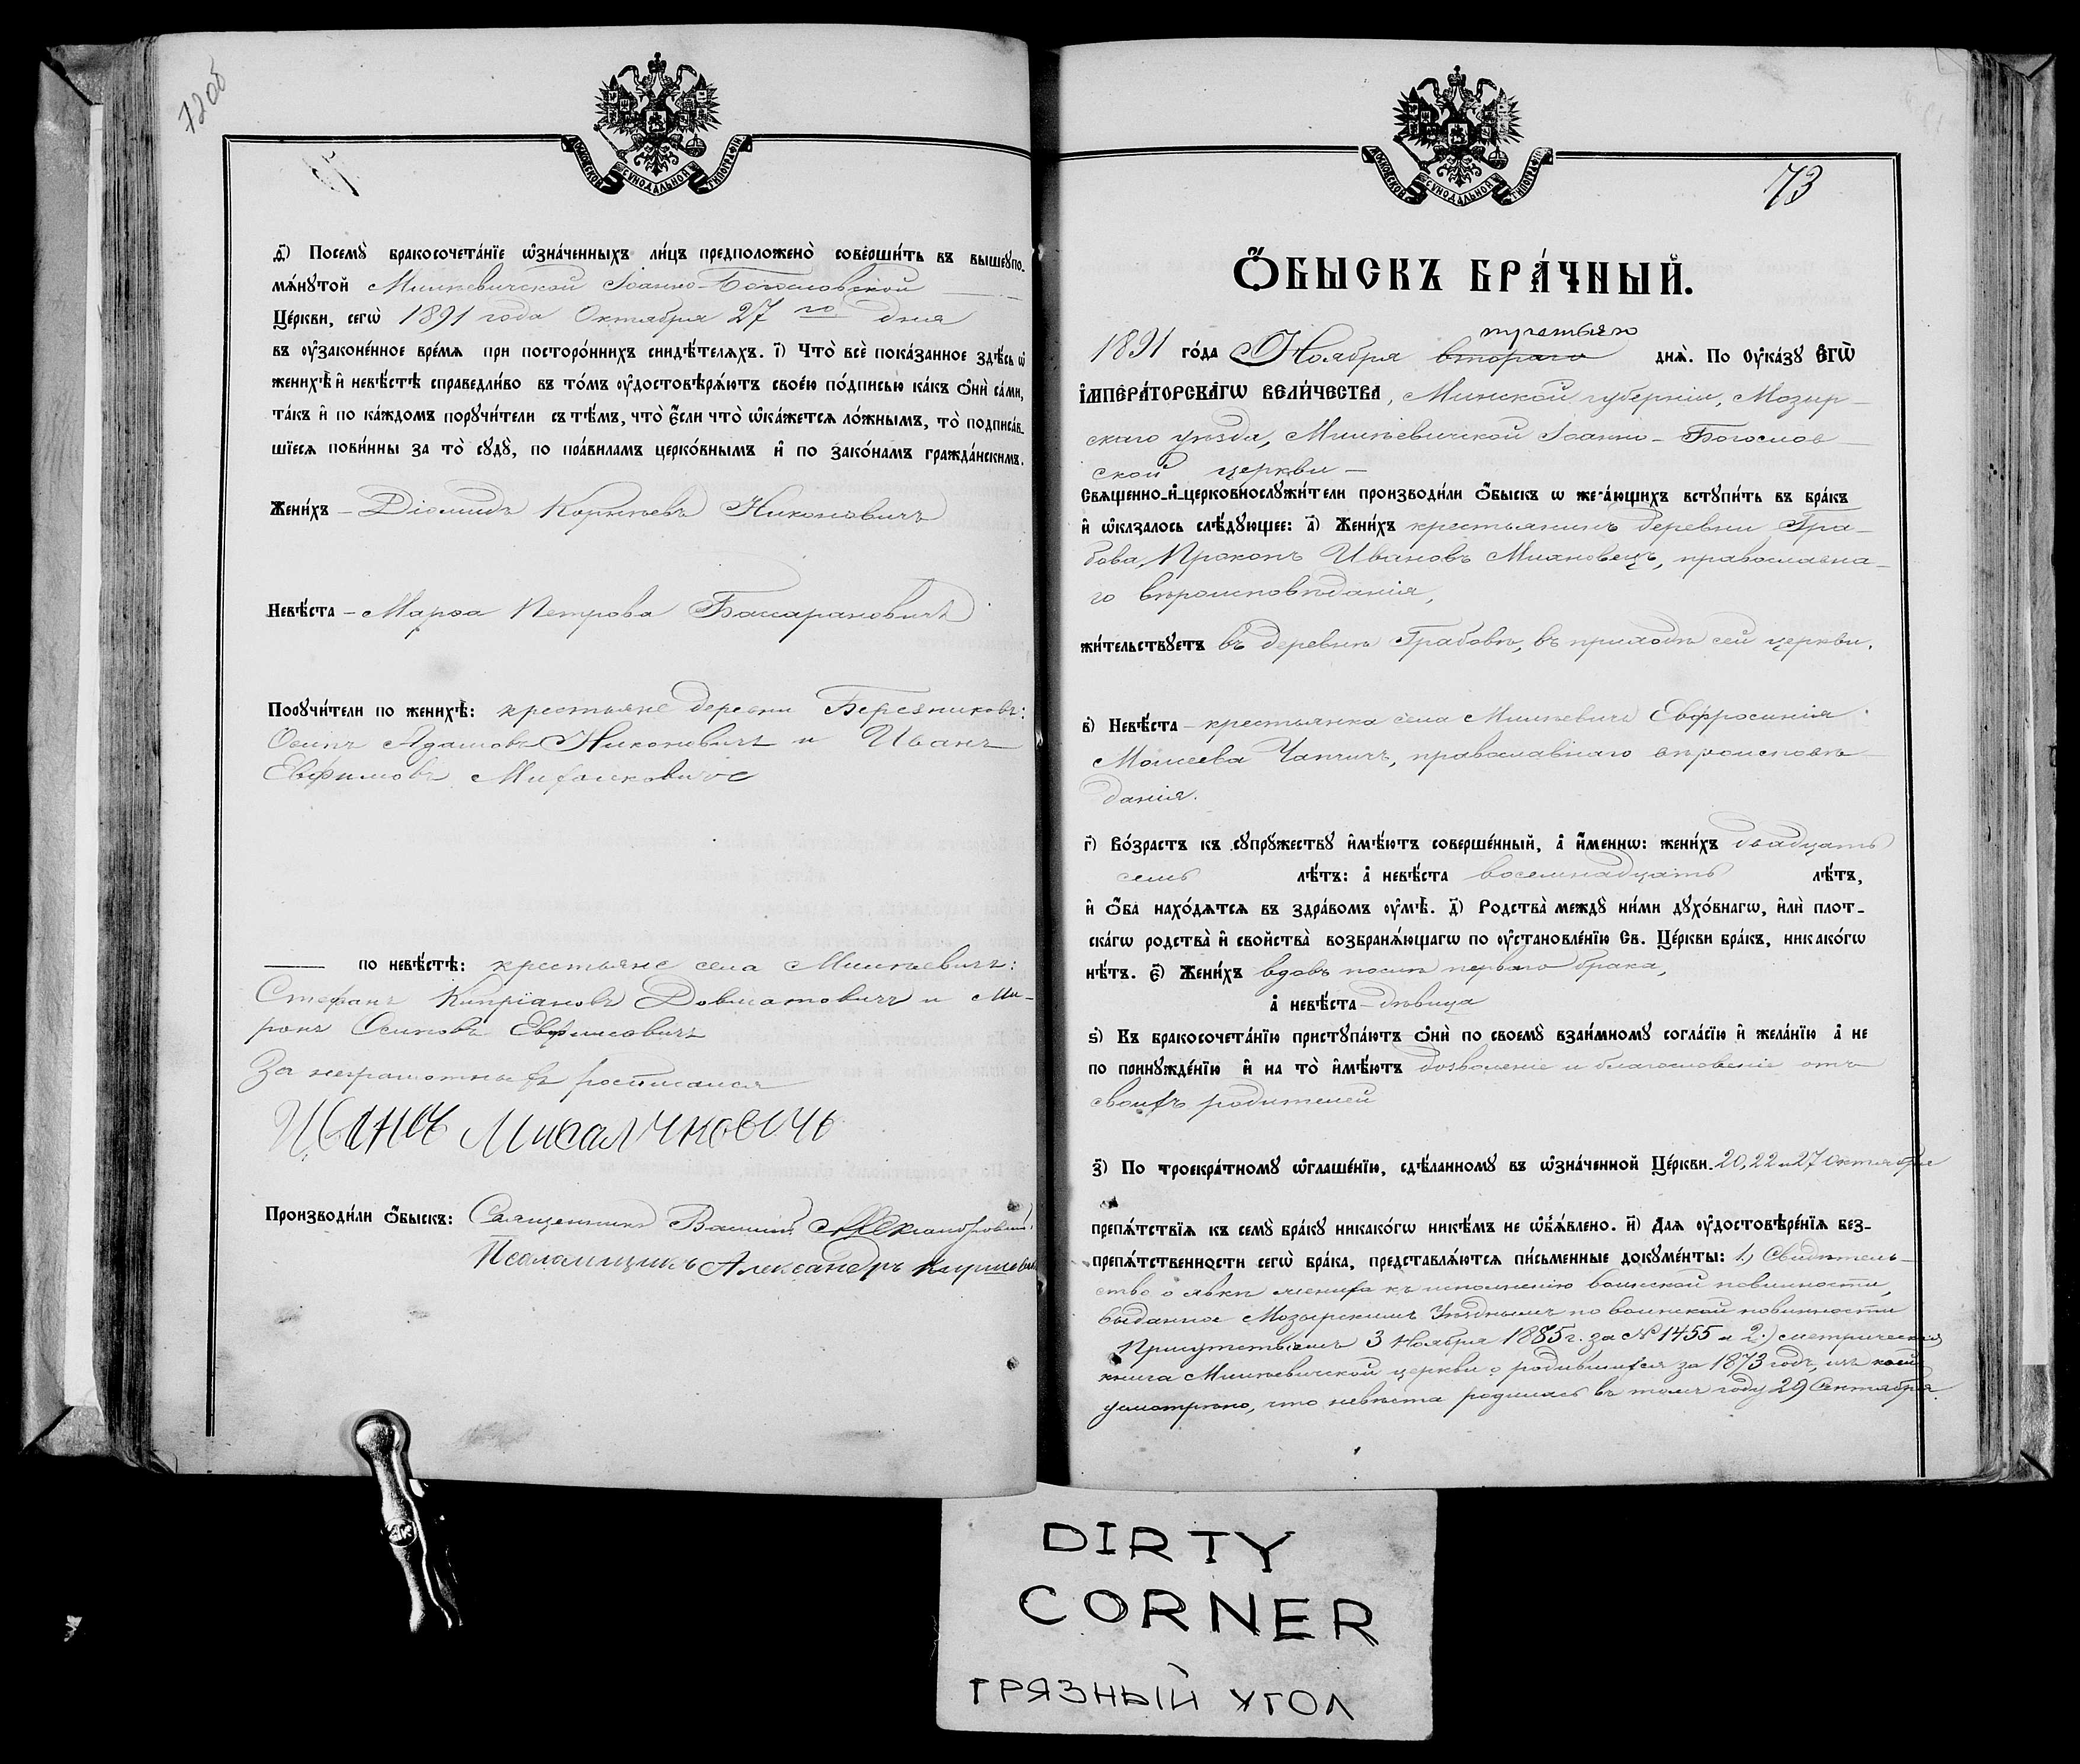 72об
МОСКОВСКОЙ СѴНОДАЛЬНОЙ ТИПОГРАФІИ
д҃і) Посемꙋ̀ бракосочета́нїе ѡ҆зна́ченныхъ ли́цъ предположено̀ соверши́ть въ вышеꙋпо-
мѧ́нꙋтой Мишкевичской Іоанно-Богословской
Це́ркви, сегѡ̀ 1891 года Октября 27 го дня
въ ᲂу҆законе́нное вре́мѧ при посторо́ннихъ свидѣ́телѧхъ. і҃) Что̀ всѐ пока́занное здѣ́сь ѡ҆
женихѣ̀ и҆ невѣ́стѣ справедли́во въ то́мъ ᲂу҆достовѣрѧ́ютъ свое́ю по́дписью ка́къ ѻ҆нѝ са́ми,
та́къ и҆ по ка́ждомъ порꙋчи́тели съ тѣ́мъ, что̀ є҆́сли что̀ ѡ҆ка́жетсѧ ло́жнымъ, то̀ подписа́в-
шїесѧ пови́нны за то̀ сꙋдꙋ̀, по пра́виламъ церко́внымъ и҆ по зако́намъ гражда́нскимъ.
Жени́хъ – Діомидъ Корнѣевъ Никоновичъ
Невѣ́ста – Марѳа Петрова Башарановичъ
Порꙋчи́тели по женихѣ̀: крестьяне деревни Березниковъ:
Осипъ Адамовъ Никоновичъ и Иванъ
Евфимовъ
по невѣ́стѣ: крестьяне села Мишкевичъ:
Стефанъ Кипріановъ Довматовичъ и Ми-
ронъ Осиповъ Евфимовичъ
За неграмотныхъ росписался
Иванъ
Производи́ли ѻ҆́быскъ: Священникъ
Псаломщикъ Александръ
МОСКОВСКОЙ СѴНОДАЛЬНОЙ ТИПОГРАФІИ
73
Ѻ҆́БЫСКЪ БРА́ЧНЫЙ.
третьяго
1891 го́да Ноября втораго днѧ̀. По ᲂу҆ка́зꙋ Є҆ГѠ̀
І҆МПЕРА́ТОРСКАГѠ ВЕЛИ́ЧЕСТВА, Минской губерніи, Мозыр-
скаго уѣзда, Мишкевичской Іоанно-Богослов-
ской церкви –
Свѧще́нно-и҆-церковнослꙋжи́тели производи́ли ѻ҆́быскъ ѡ҆ жела́ющихъ встꙋпи́ть въ бра́къ
и҆ ѡ҆каза́лось слѣ́дꙋющее: а҃) Жени́хъ крестьянинъ деревни Гра-
бова, Прокопъ Ивановъ, православна-
го вѣроисповѣданія,
жи́тельствꙋетъ въ деревнѣ Грабовѣ, въ приходѣ сей церкви.
в҃) Невѣ́ста – крестьянка села Мишкевичъ Евфросинія
Моисеева, православнаго вѣроисповѣ-
данія.
г҃) Во́зрастъ къ сꙋпрꙋ́жествꙋ и҆мѣ́ютъ соверше́нный, а҆ и҆́меннѡ: жени́хъ двадцать
семь лѣ́тъ: а҆ невѣ́ста восемнадцать лѣ́тъ,
и҆ ѻ҆́ба нахо́дѧтсѧ въ здра́вомъ ᲂу҆мѣ̀. д҃) Родства̀ междꙋ̀ ни́ми дꙋхо́внагѡ, и҆лѝ плот-
ска́гѡ родства̀ и҆ сво́йства̀ возбранѧ́ющагѡ по ᲂу҆становле́нїю Св. Це́ркви бра́къ, никако́гѡ
нѣ́тъ. є҃) Жени́хъ вдовъ послѣ перваго брака,
а҆ невѣ́ста – дѣвица
ѕ҃) Къ бракосочета́нїю пристꙋпа́ютъ ѻ҆нѝ по своемꙋ̀ взаи́мномꙋ согла́сїю и҆ жела́нїю а҆ не
по принꙋжде́нїю и҆ на то̀ и҆мѣ́ютъ дозволеніе и благословеніе отъ
своихъ родителей
з҃) По троекра́тномꙋ ѡ҆глаше́нїю, сдѣ́ланномꙋ въ ѡ҆зна́ченной Це́ркви 20, 22 и 27 Октября
препѧ́тствїѧ къ семꙋ̀ бра́кꙋ никако́гѡ никѣ́мъ не ѡ҆б̾ѧ́влено. и҃) Для ᲂу҆достовѣре́нїѧ без-
препѧ́тственности сегѡ̀ бра́ка, представлѧ́ютсѧ пи́сьменные докꙋме́нты: 1) Свидѣтель-
ство о явкѣ жениха къ исполненію воинской повинности,
выданное Мозырскимъ Уѣзднымъ по воинской повинности
Присутствіемъ 3 Ноября 1885 г. за № 1455 и 2) метрическая
книга Мишкевичской церкви о родившихся за 1873 годъ, изъ коей
усмотрѣно, что невѣста родилась въ томъ году 29 Сентября.
DIRTY
CORNER
ГРЯЗНЫЙ УГОЛ